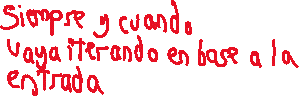 Siempre y cuando
vaya iterando en base a la
entrada